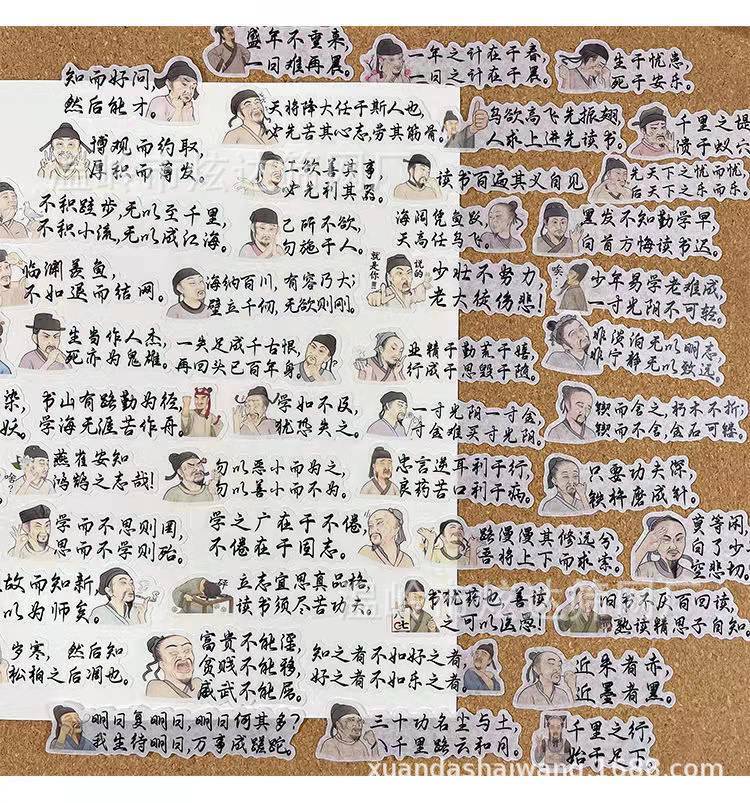 盛年不重来，
一日难再晨。
一年之计在于春，
一日之计在于晨。
生于忧患，
死于安乐。
知而好问，
然后能才。
天将降大任于斯人也，
必先苦其心志，劳其筋骨！
鸟欲高飞先振翅，
人求上进先读书。
千里之堤
溃于蚁穴
博观而约取，
厚积而薄发。
工欲善其事，
必先利其器。
读书百遍其义自见
先天下之忧而忧，
后天下之乐而乐。
不积跬步，无以至千里，
不积小流，无以成江海。
己所不欲，
勿施于人。
海阔凭鱼跃，
天高任鸟飞。
黑发不知勤学早，
白首方悔读书迟。
临渊羡鱼，
不如退而结网。
海纳百川，有容乃大；
壁立千仞，无欲则刚。
就是你!!!
说的
少壮不努力，
老大徒伤悲！
唉：
少年易学老难成，
一寸光阴不可轻。
生当作人杰，
死亦为鬼雄。
一失足成千古恨，
再回头已百年身。
业精于勤荒于嬉，
行成于思毁于随。
非淡泊无以明志，
非宁静无以致远。
染，
妖。
书山有路勤为径，
学海无涯苦作舟。
学如不及，
犹恐失之。
一寸光阴一寸金，
寸金难买寸光阴。
锲而舍之，朽木不折；
锲而不舍，金石可镂。
啥？
燕雀安知
鸿鹄之志哉！
勿以恶小而为之，
勿以善小而不为。
忠言逆耳利于行，
良药苦口利于病。
只要功夫深，
铁杵磨成针。
学而不思则罔，
思而不学则殆。
学之广在于不倦，
不倦在于固志。
路漫漫其修远兮，
吾将上下而求索。
莫等闲
白了少
空悲切
故而知新，
以为师矣。
立志宜思真品格，
读书须尽苦功夫。
书犹药也，善读
之可以医愚！
旧书不厌百回读，
熟读精思子自知。
岁寒，然后知
松柏之后凋也。
富贵不能淫，
贫贱不能移，
威武不能屈。
知之者不如好之者，
好之者不如乐之者。
近朱者赤，
近墨者黑。
明日复明日，明日何其多？
我生待明日，万事成蹉跎。
三十功名尘与土，
八千里路云和月。
千里之行，
始于足下。
xuandashaiwang.1688.com